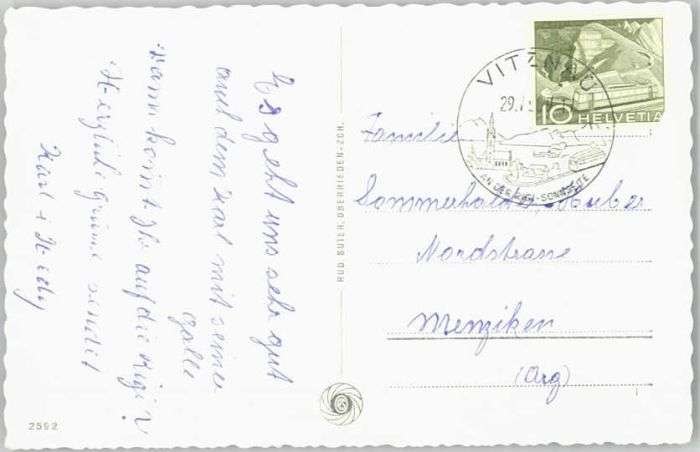 Es geht uns sehr gut
auch dem Karl mit seiner
Galle
wann kommt Ihr auf die Rigi?
Herzliche Grüsse sendet
Karl + Hedy
2592
RUD. SUTER, OBERRIEDEN-ZCH.
VITZNAU
29.
AN DER RIGI-SONNSEITE
10 HELVETIA
Familie
Sommerhalder, Huber
Nordstrasse
Menziken
(Arg)